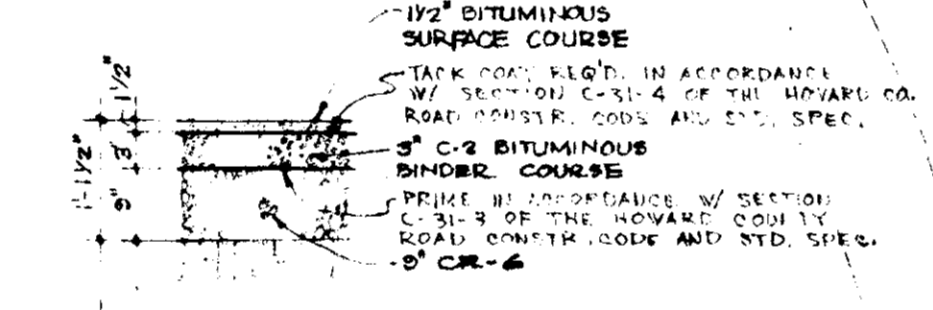 1½" BITUMINOUS
SURFACE COURSE
TACK COAT REQ'D. IN ACCORDANCE
W/ SECTION C-31-4 OF THE HOWARD CO.
ROAD CONSTR. CODE AND STD. SPEC.
3" C-2 BITUMINOUS
BINDER COURSE
PRIME IN ACCORDANCE W/ SECTION
C-31-3 OF THE HOWARD COUNTY
ROAD CONSTR. CODE AND STD. SPEC.
9" CR-6
1½"
3"
9"
1'-1½"